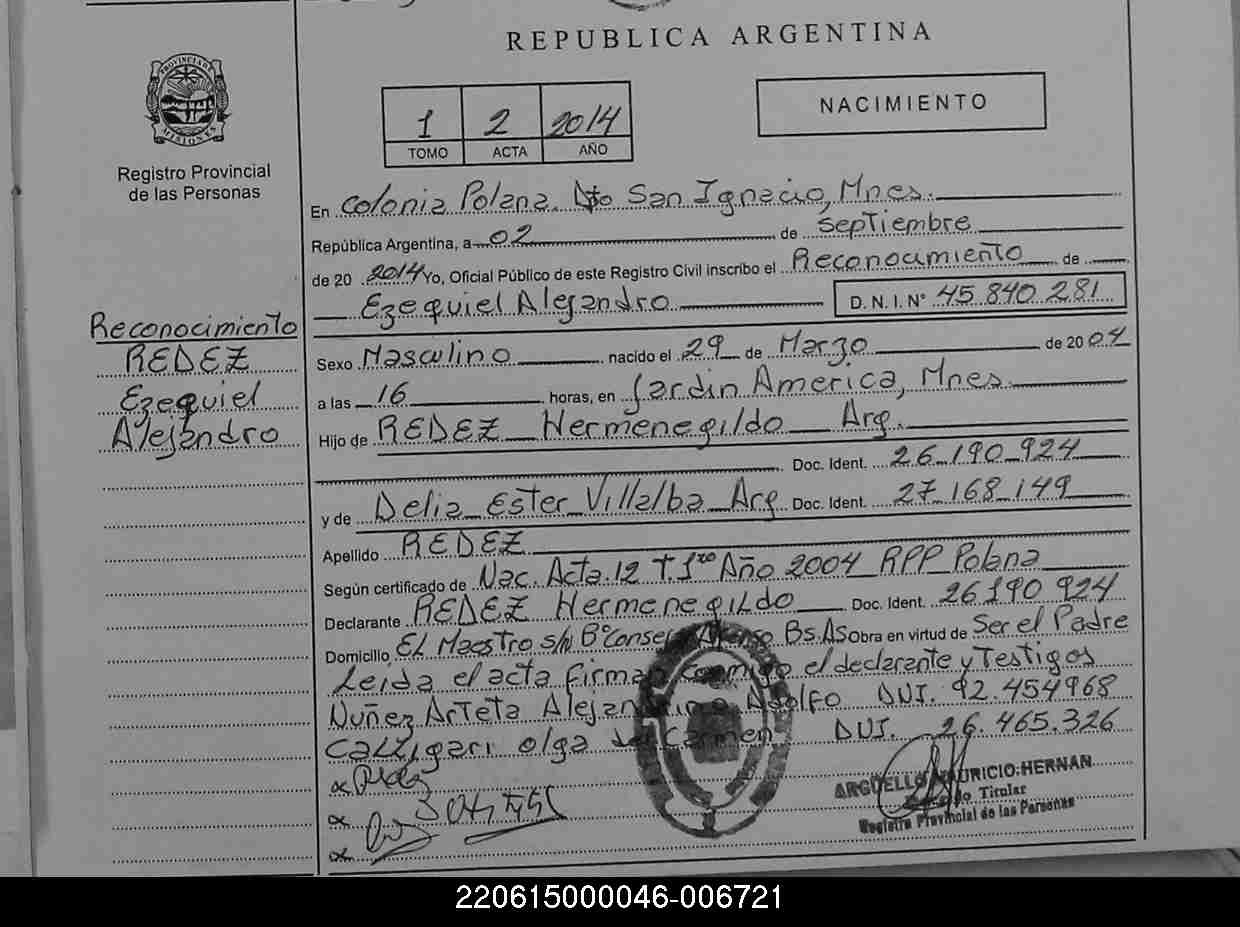 REPUBLICA ARGENTINA
PROVINCIA DE MISIONES
Registro Provincial
de las Personas
1 2 2014
TOMO ACTA AÑO
NACIMIENTO
En Colonia Polana. Dto San Ignacio, Mnes.
República Argentina, a 02 de Septiembre
de 20 2014 Yo, Oficial Público de este Registro Civil inscribo el Reconocimiento de
Ezequiel Alejandro D.N.I.N° 45 840 281
Reconocimiento
REDEZ
Ezequiel
Alejandro
Sexo Masculino nacido el 29 de Marzo de 20 04
a las 16 horas, en Jardin America, Mnes.
Hijo de REDEZ Hermenegildo Arg.
Doc. Ident. 26 190 924
y de Delia Ester Villalba Arg. Doc. Ident. 27 168 149
Apellido REDEZ
Según certificado de Nac. Acta.12 T.1ro Año 2004 RPP Polana
Declarante REDEZ Hermenegildo Doc. Ident. 26190 924
Domicilio El Maestro s/n B° Bs.As Obra en virtud de Ser el Padre
Leida el acta firman conmigo el declarante y Testigos
Nuñez Arteta Adolfo DNI. 92.454968
Calligari Olga del Carmen DNI. 26.465.326
ARGÜELLO MAURICIO HERNAN
Titular
Registro Provincial de las Personas
220615000046-006721